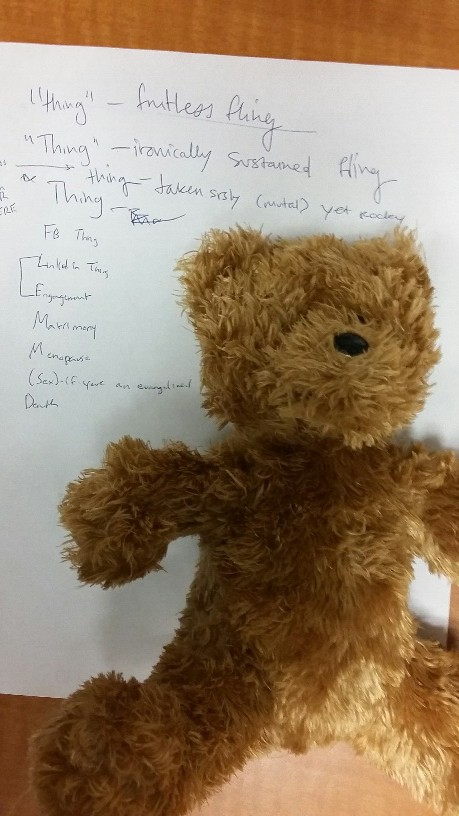 "thing" – fruitless fling
"Thing" – ironically sustained fling
thing – taken srsly (mutal) yet
Thing –
FB Thing
Linked in Thing
Engagement
Matrimony
Menopause
(Sex) – if you're an evangelical
Death